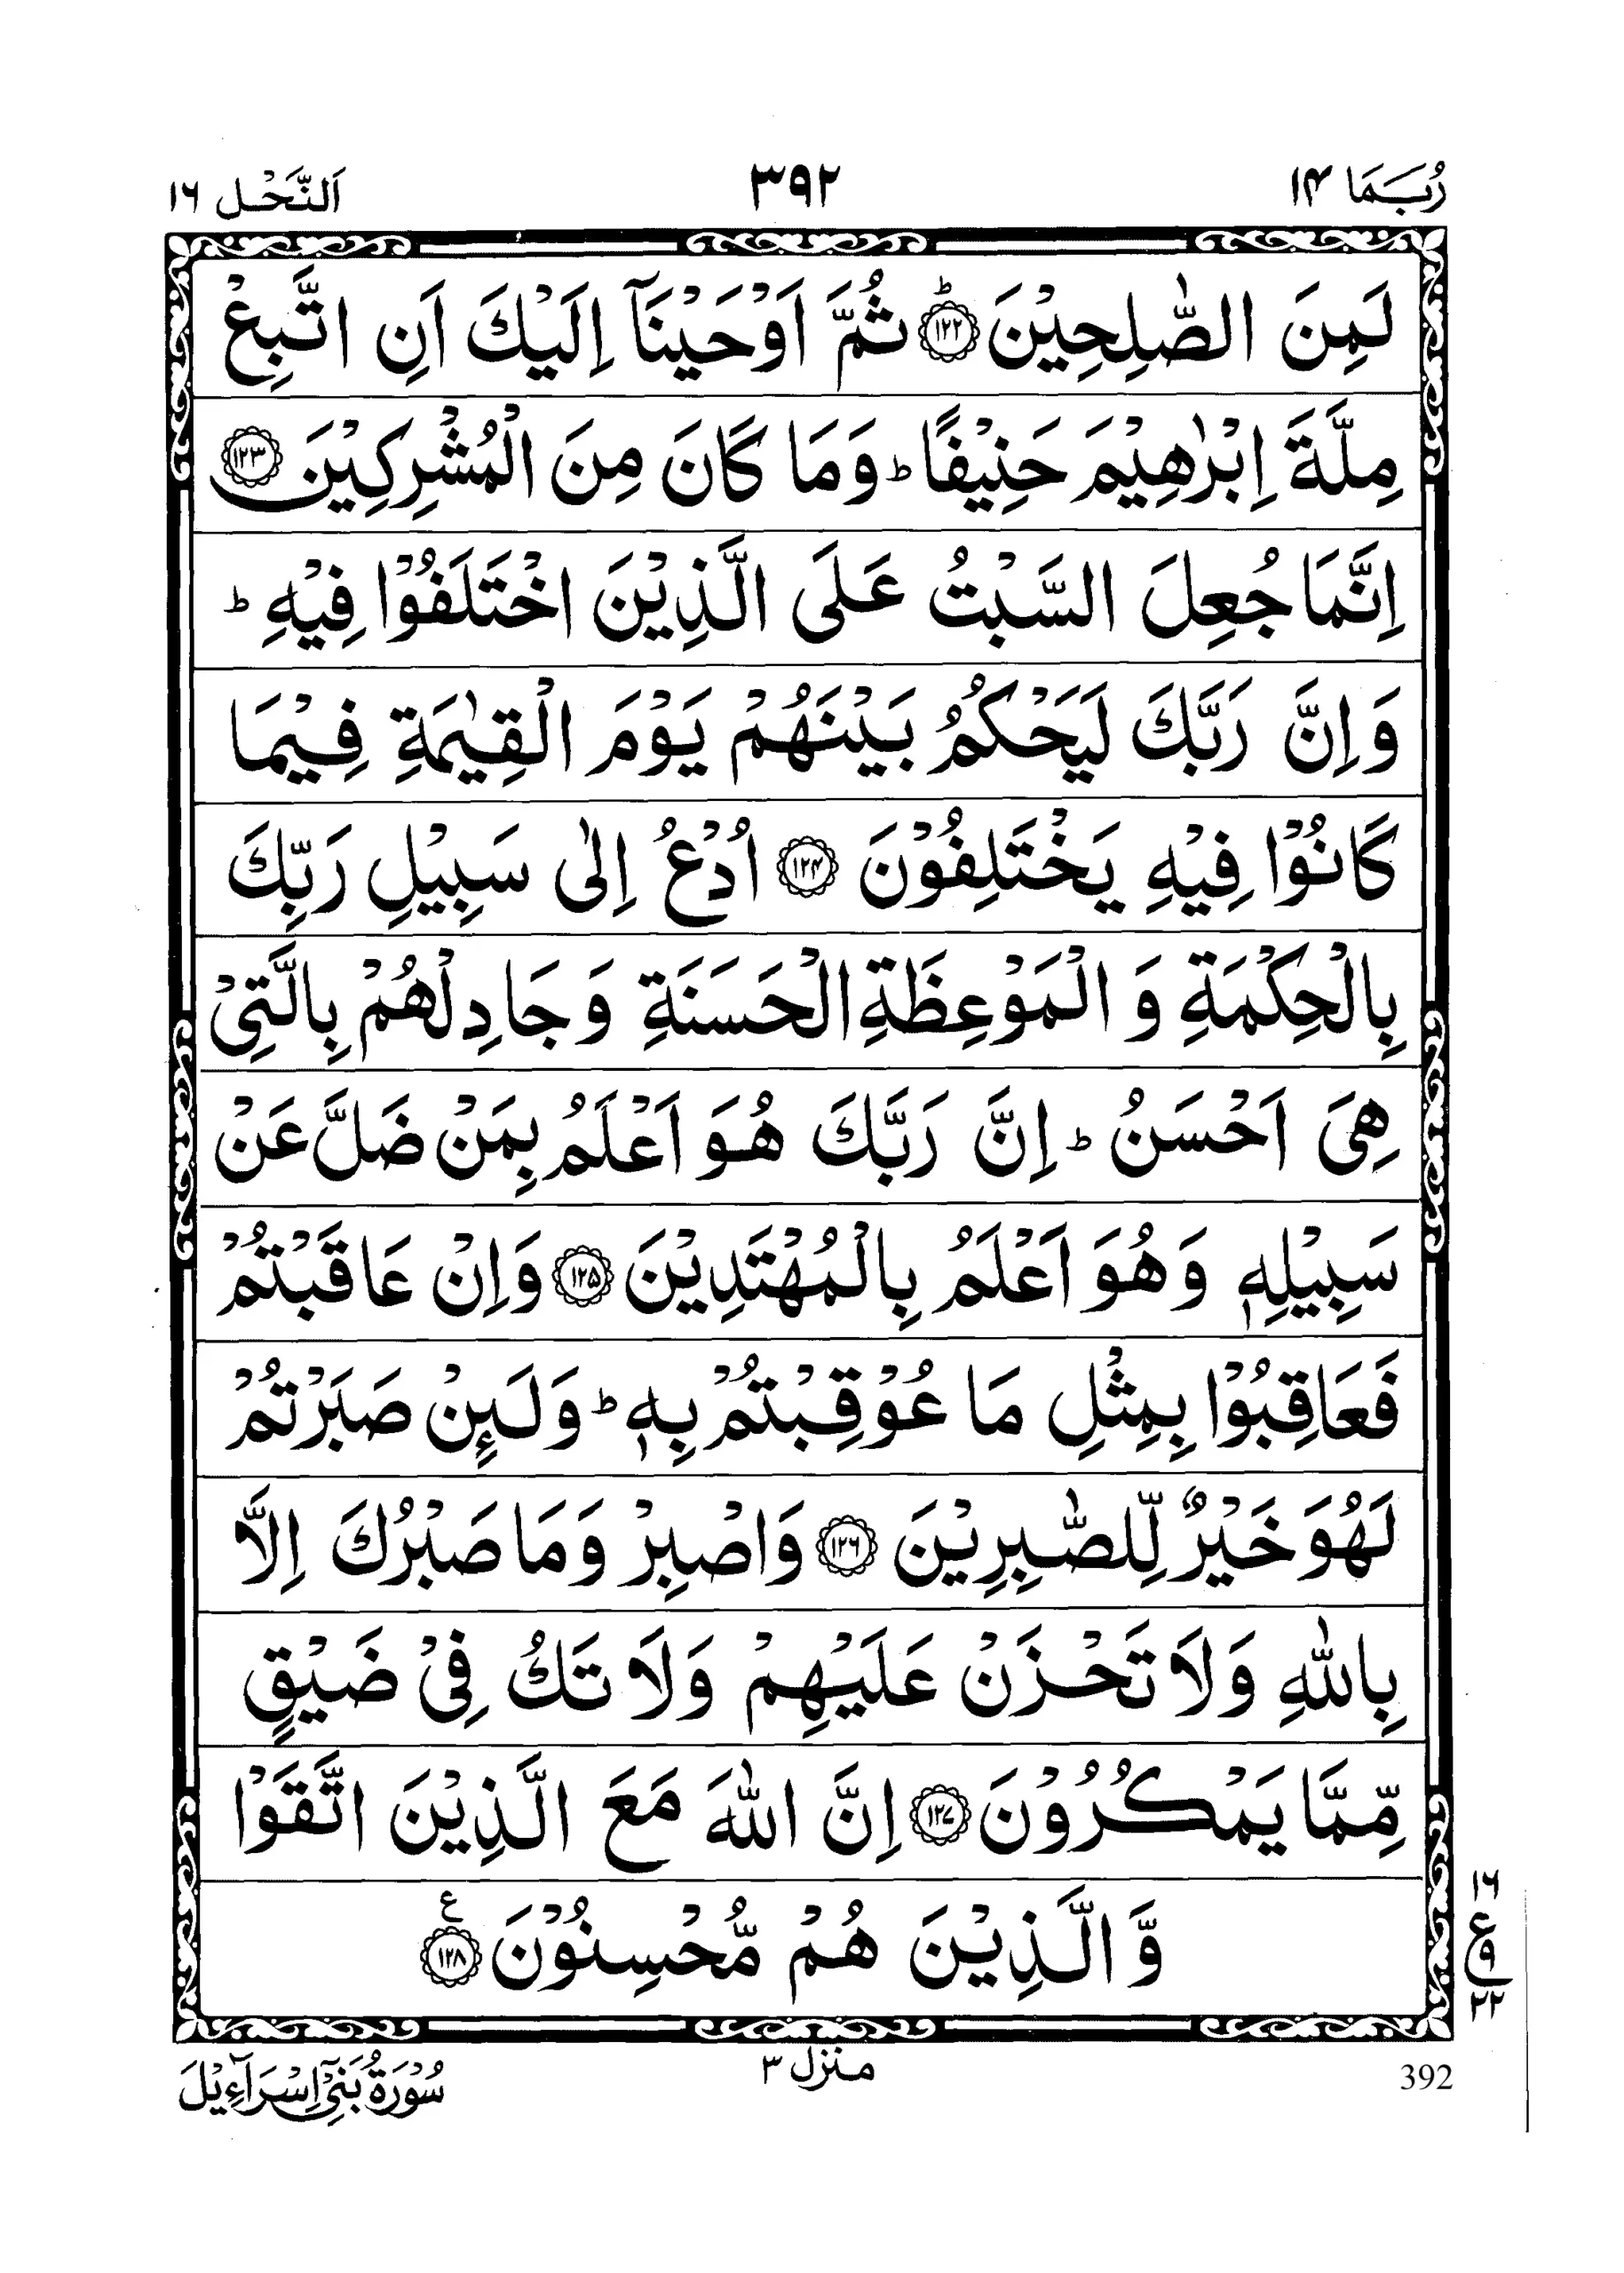 رُبَمَا ١٤ ٣٩٢ اَلنَّحْل ١٦
لَمِنَ الصّٰلِحِيْنَ ؕ ﴿١٢٢﴾ ثُمَّ اَوْحَيْنَاۤ اِلَيْكَ اَنِ اتَّبِعْ
مِلَّةَ اِبْرٰهِيْمَ حَنِيْفًا ؕ وَمَا كَانَ مِنَ الْمُشْرِكِيْنَ ﴿١٢٣﴾
اِنَّمَا جُعِلَ السَّبْتُ عَلَى الَّذِيْنَ اخْتَلَفُوْا فِيْهِ ؕ
وَاِنَّ رَبَّكَ لَيَحْكُمُ بَيْنَهُمْ يَوْمَ الْقِيٰمَةِ فِيْمَا
كَانُوْا فِيْهِ يَخْتَلِفُوْنَ ﴿١٢٤﴾ اُدْعُ اِلٰى سَبِيْلِ رَبِّكَ
بِالْحِكْمَةِ وَ الْمَوْعِظَةِ الْحَسَنَةِ وَجَادِلْهُمْ بِالَّتِيْ
هِيَ اَحْسَنُ ؕ اِنَّ رَبَّكَ هُوَ اَعْلَمُ بِمَنْ ضَلَّ عَنْ
سَبِيْلِهٖ وَهُوَ اَعْلَمُ بِالْمُهْتَدِيْنَ ﴿١٢٥﴾ وَاِنْ عَاقَبْتُمْ
فَعَاقِبُوْا بِمِثْلِ مَا عُوْقِبْتُمْ بِهٖ ؕ وَلَىِٕنْ صَبَرْتُمْ
لَهُوَ خَيْرٌ لِّلصّٰبِرِيْنَ ﴿١٢٦﴾ وَاصْبِرْ وَمَا صَبْرُكَ اِلَّا
بِاللّٰهِ وَلَا تَحْزَنْ عَلَيْهِمْ وَلَا تَكُ فِيْ ضَيْقٍ
مِّمَّا يَمْكُرُوْنَ ﴿١٢٧﴾ اِنَّ اللّٰهَ مَعَ الَّذِيْنَ اتَّقَوْا
وَّالَّذِيْنَ هُمْ مُّحْسِنُوْنَ ﴿١٢٨﴾ ع
١٦
ع
٩
٢٢
392 منزل ٣ سُوْرَةُ بَنِيْۤ اِسْرَآءِيْلَ